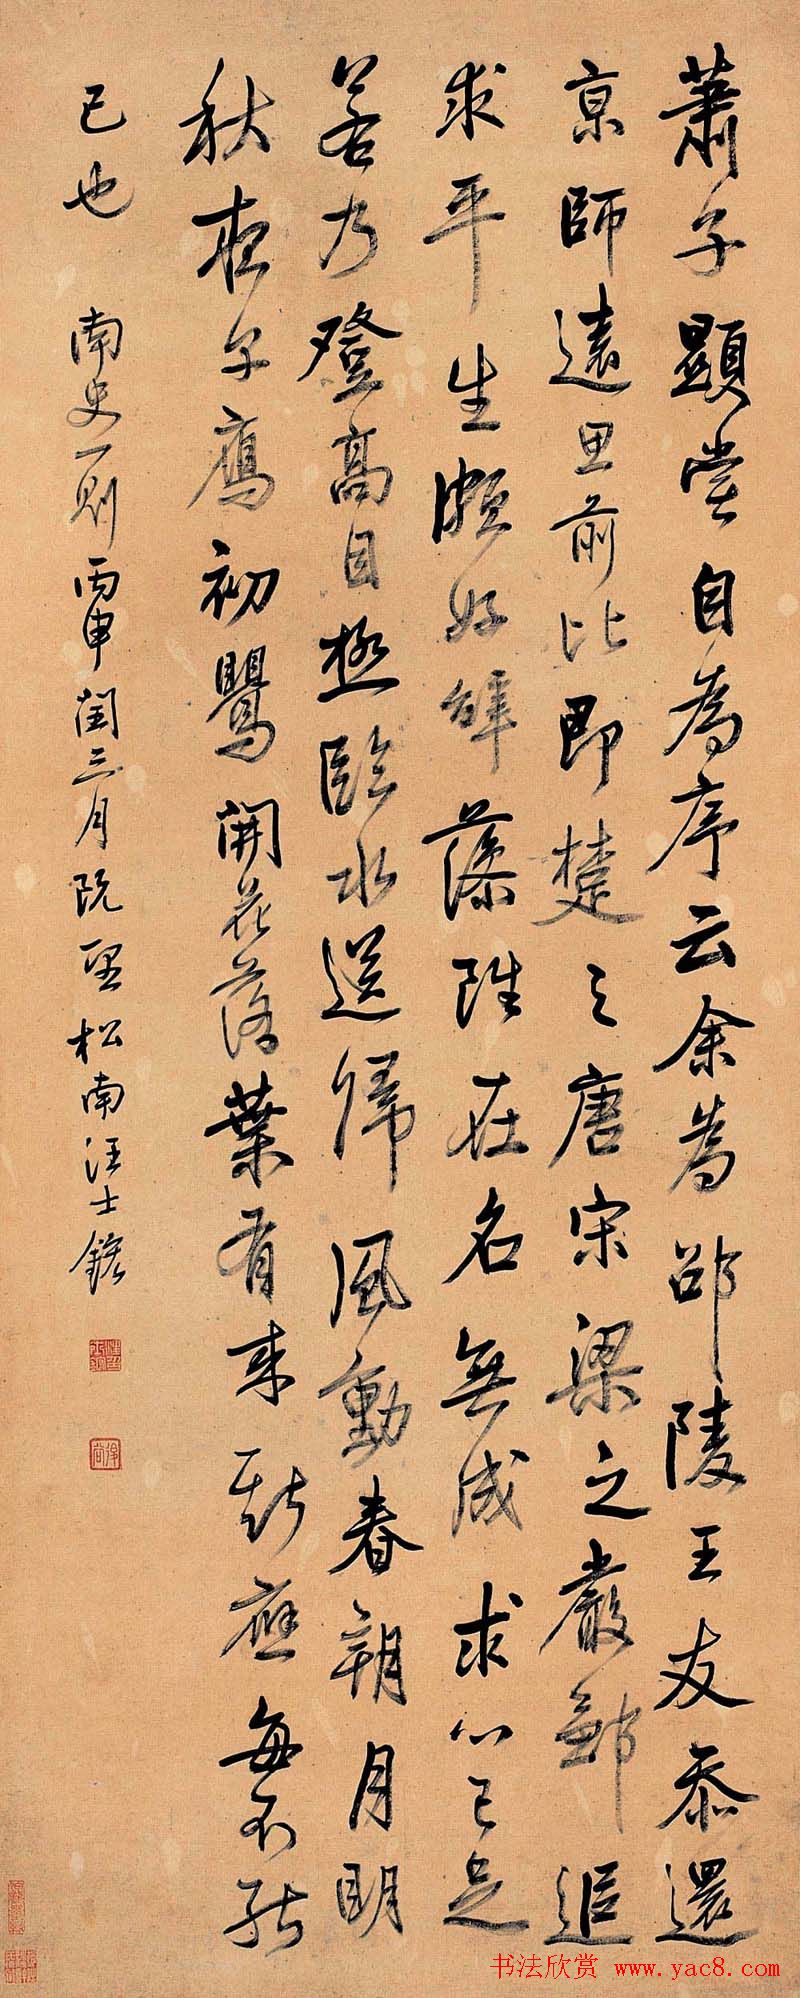 蕭子顯嘗自為序云余為邵陵王友忝還
京師遠思前比即楚之唐宋梁之嚴鄒追
求平生頗好辭藻雖在名無成求心已足
若乃登高目極臨水送歸風動春朝月明
秋夜早鴈初鸎開花落葉有來斯應每不能
已也 南史一則 丙申閏三月既望松南汪士鋐
书法欣赏 www.yac8.com